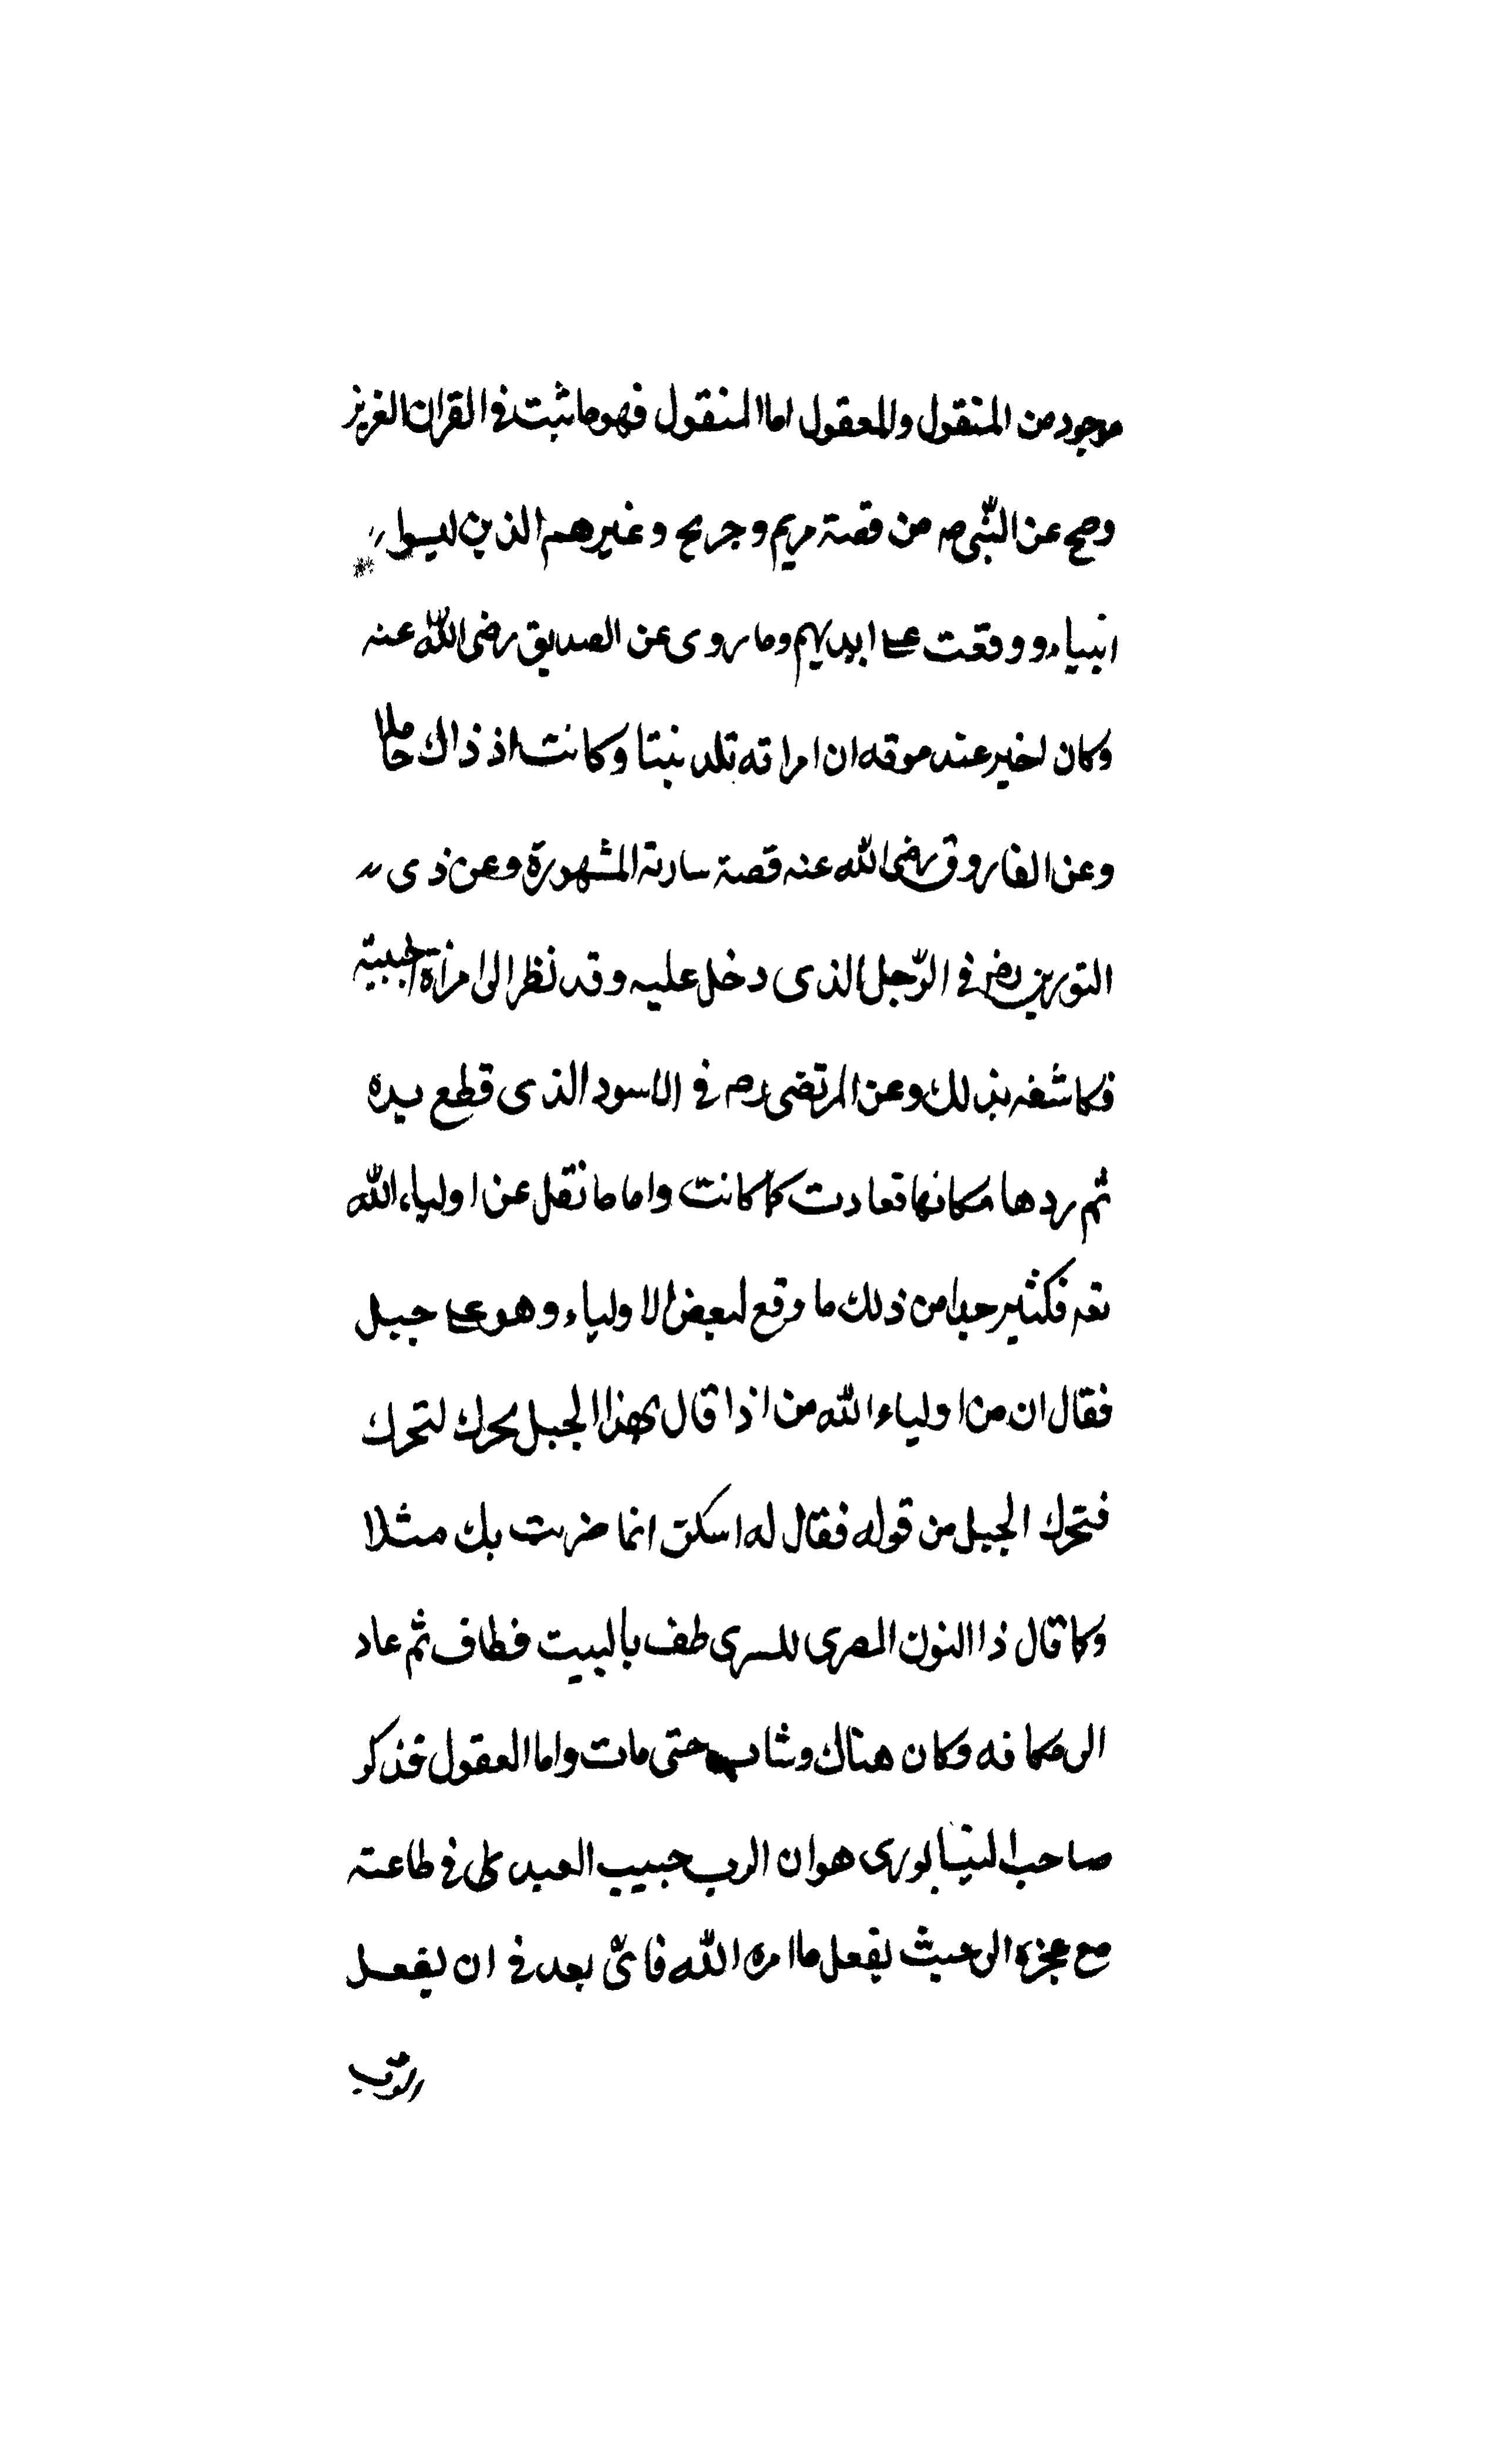 موجود من المنقول والمعقول اما المنقول فهو ما ثبت في القران العزيز
وصح عن النّبي صه من قصة مريم وجريح وغيرهم الذين ليسوا
انبياء ووقعت على ايديهم وما روى عن الصديق رضى الله عنه
وكان اخبر عند موته ان امراته تلد بنتا وكانت اذ ذاك حاملا
وعن الفاروق رضى الله عنه قصة سارية المشهورة وعن ذى
النورين رضى في الرّجل الذى دخل عليه وقد نظر الى امراة اجنبية
فكاشفه بذلك وعن المرتضى رضه في الاسود الذى قطع يده
ثم ردها مكانها فعادت كما كانت واما ما نقل عن اولياء الله
تعه فكثير جدا من ذلك ما وقع لبعض الاولياء وهو على جبل
فقال ان من اولياء الله من اذا قال لهذا الجبل تحرك لتحرك
فتحرك الجبل من قوله فقال له اسكن انما ضربت بك مثلا
وكما قال ذا النون المصرى للسرى طف بالبيت فطاف ثم عاد
الى مكانه وكان هناك وشاب حتى مات واما العقول فذكر
صاحب النيسابورى هو ان الرب حبيب العبد في طاعته
مع عجزه الى حيث يفعل ما امره الله فاىّ بعد في ان يفعل
الرب